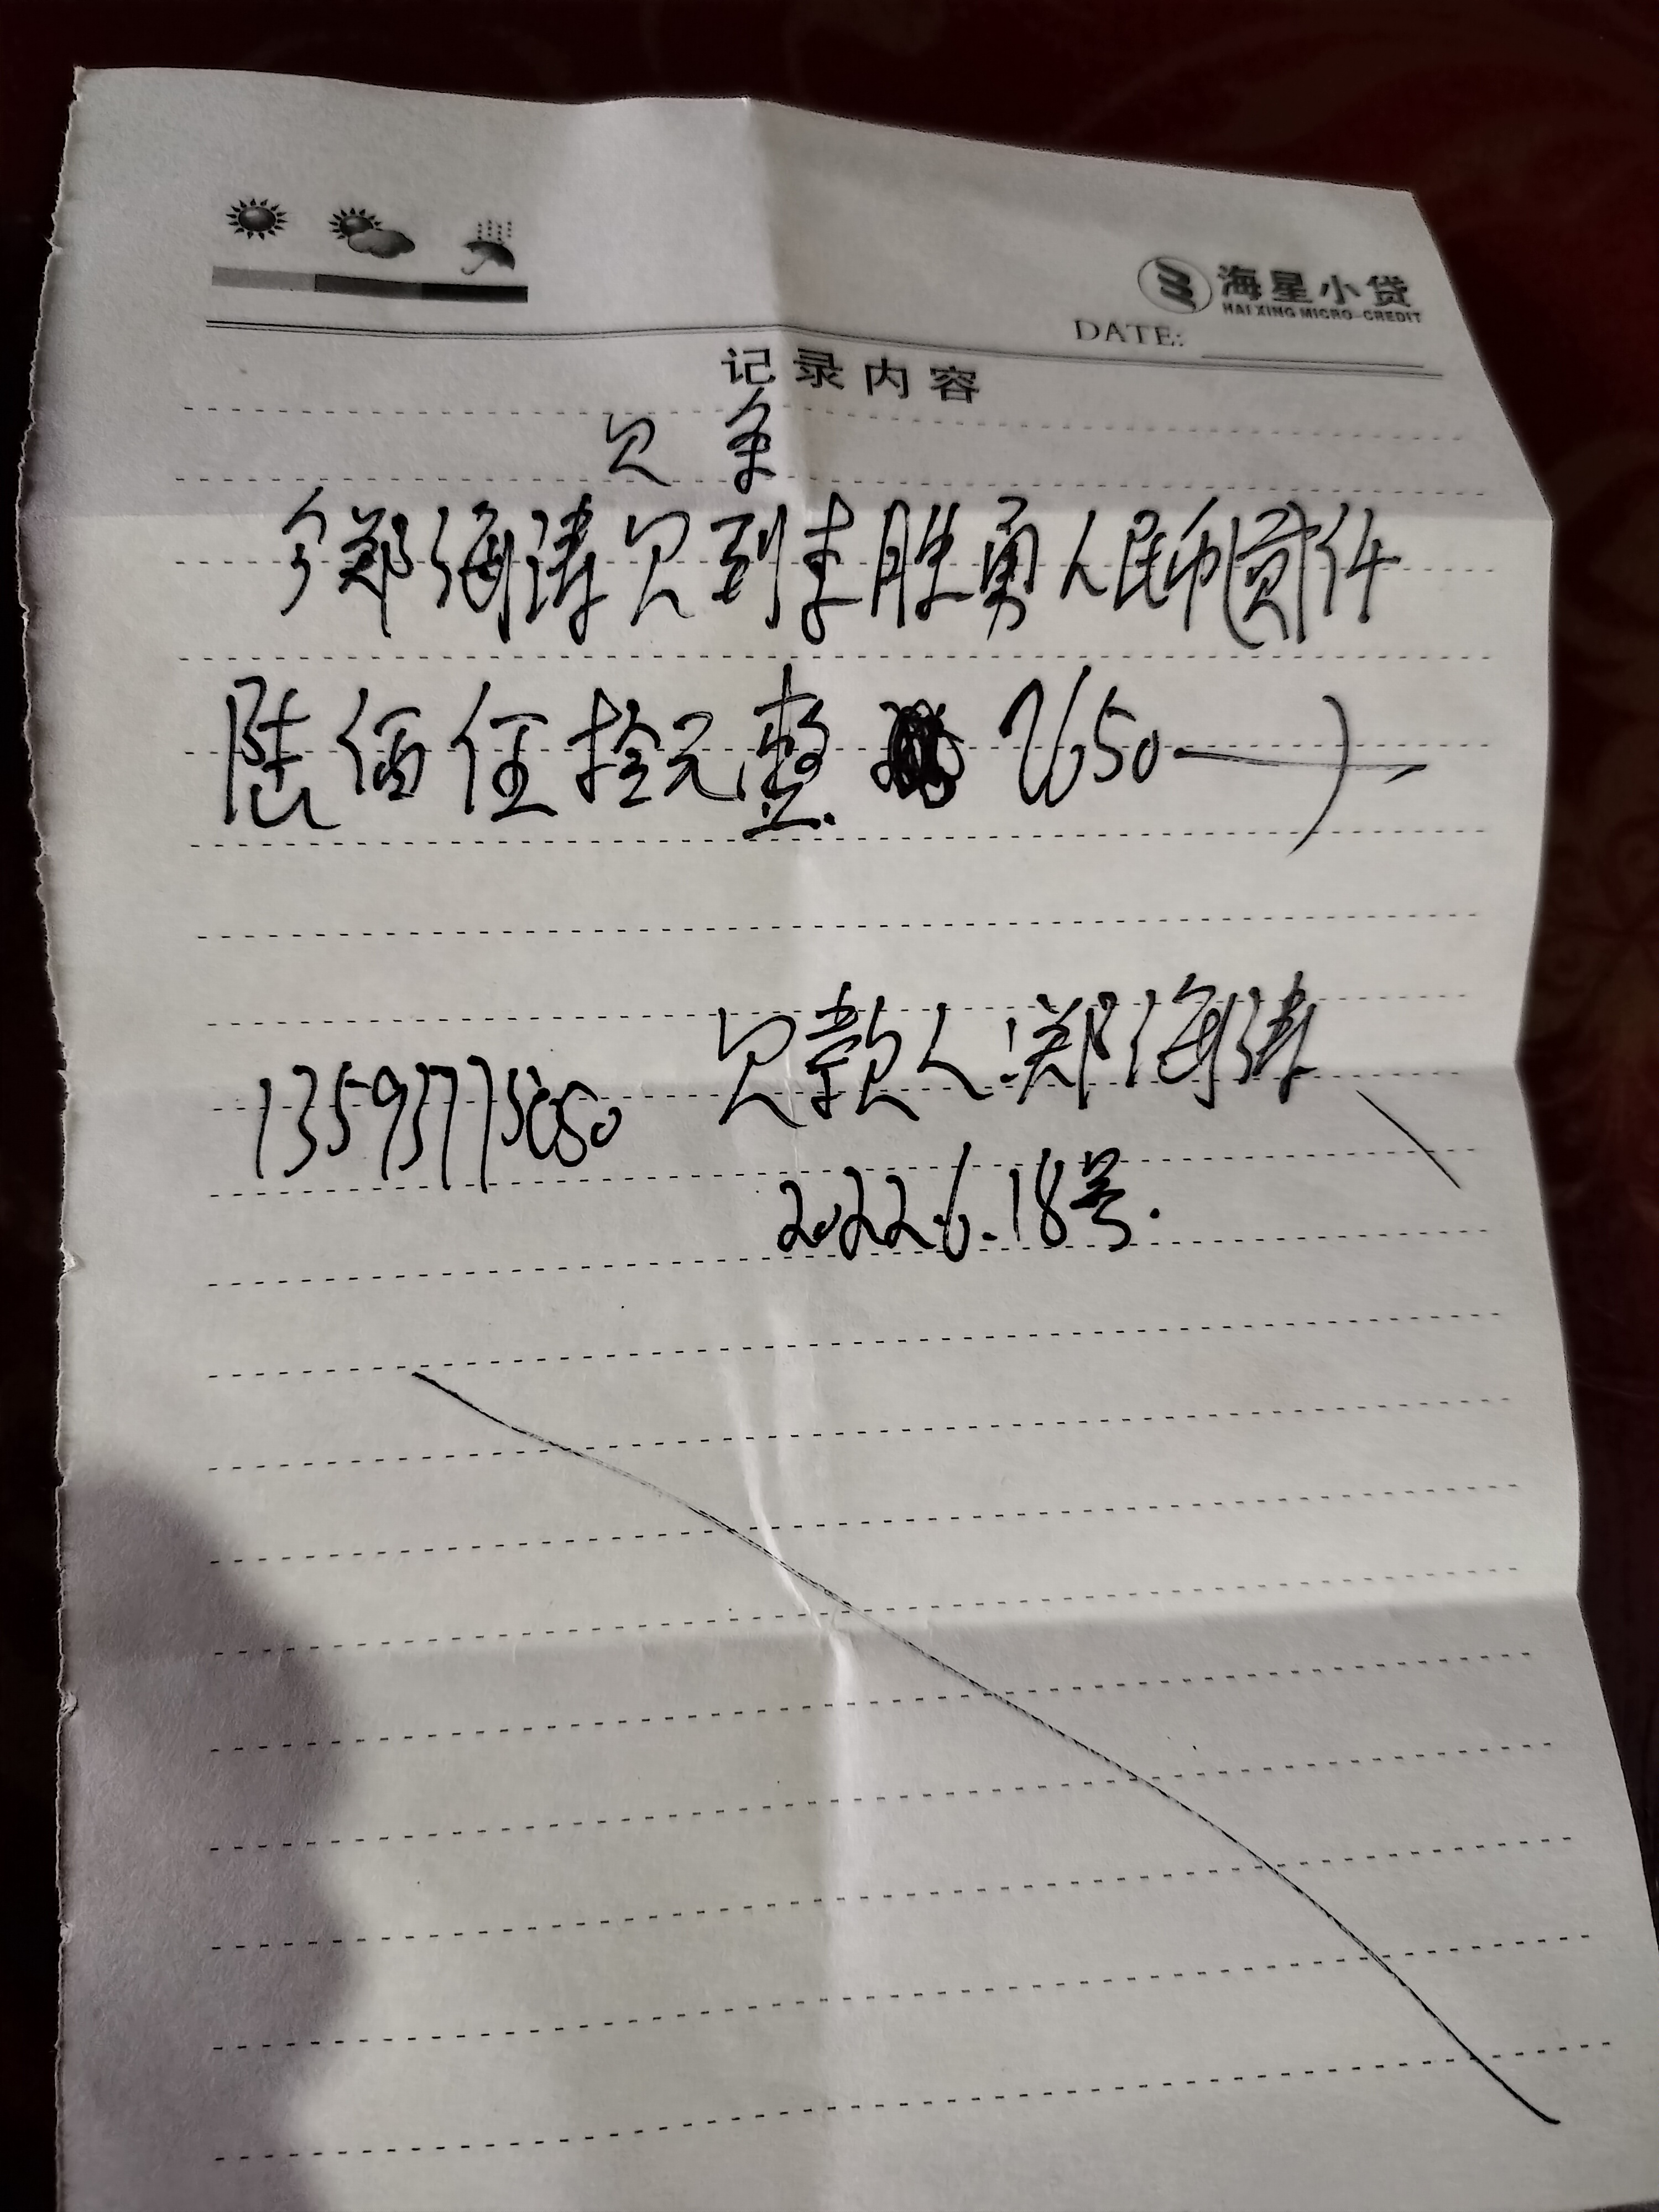 海星小贷
HAI XING MICRO-CREDIT
DATE:
记录内容
欠条
今郑海涛欠到李胜勇人民币(贰仟
陆佰伍拾元整 2650—)
欠款人:郑海涛
2022.6.18号.